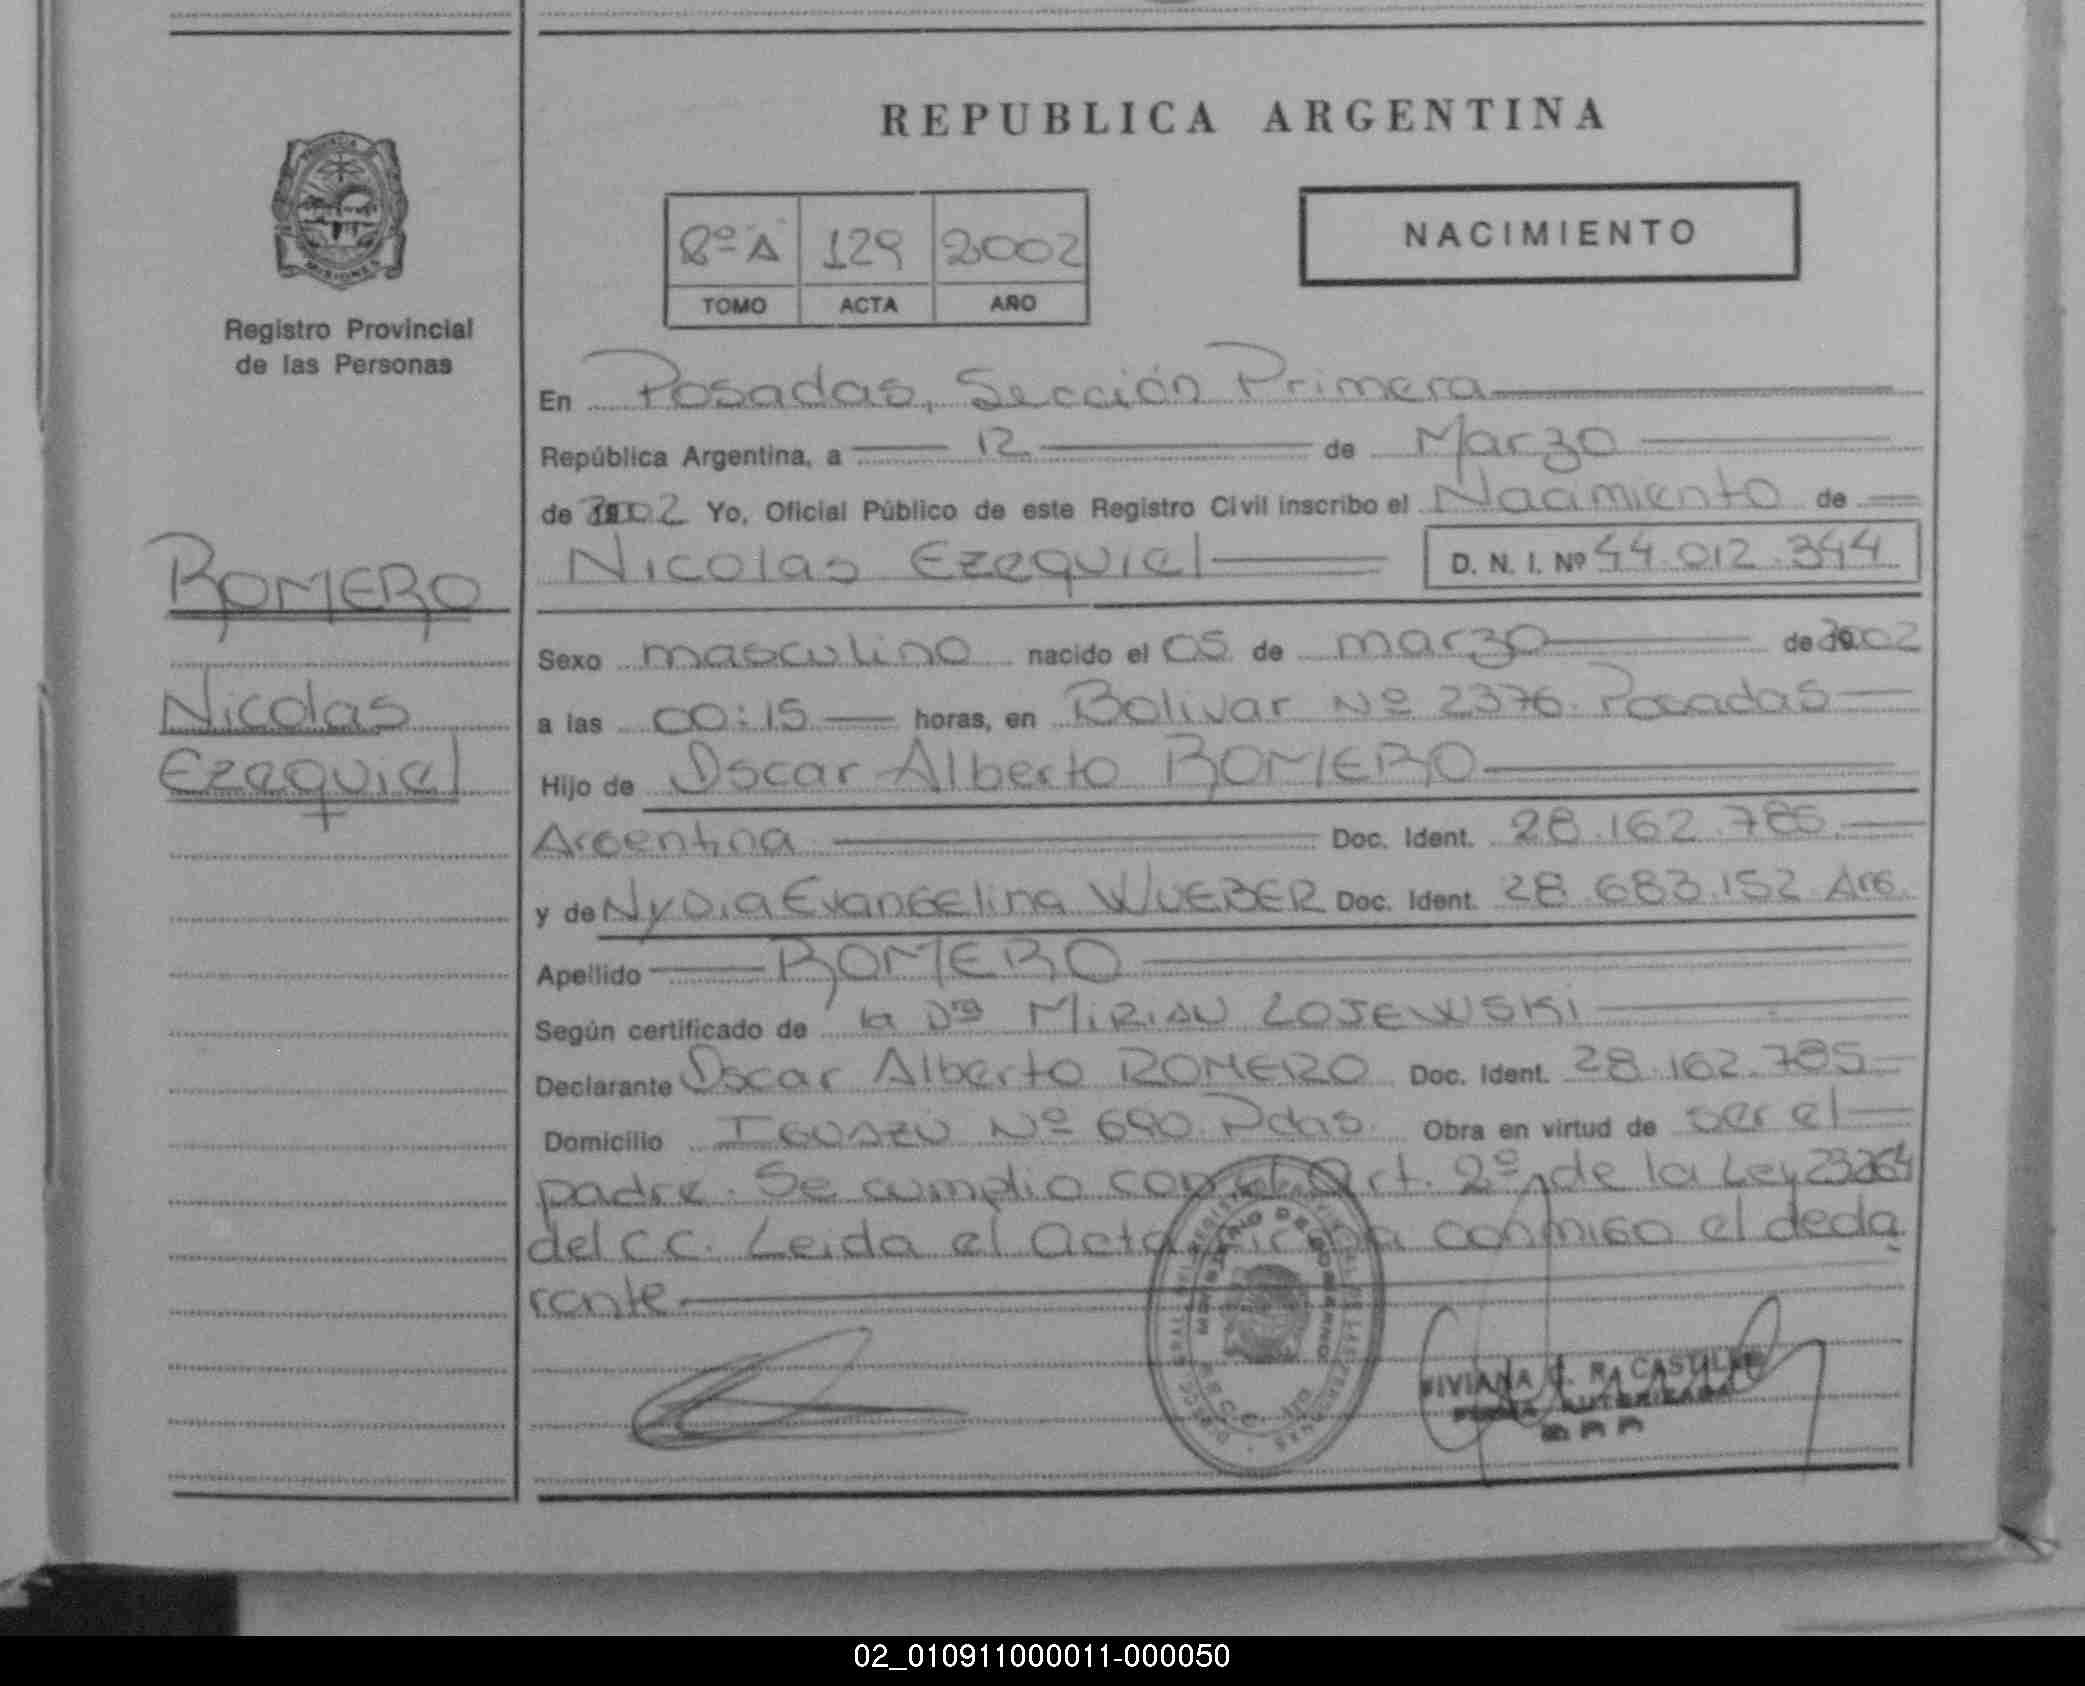 REPUBLICA ARGENTINA
8º A 129 2002
TOMO ACTA AÑO
NACIMIENTO
MISIONES
Registro Provincial
de las Personas
ROMERO
Nicolas
Ezequiel
En Posadas, Sección Primera
República Argentina, a 12 de Marzo
de 2002 Yo, Oficial Público de este Registro Civil inscribo el Nacimiento de
Nicolas Ezequiel D. N. I. Nº 44.012.344
Sexo masculino nacido el 05 de marzo de 2002
a las 00:15 horas, en Bolivar Nº 2376. Posadas
Hijo de Oscar Alberto ROMERO
Argentina Doc. Ident. 28.162.785
y de Nydia Evangelina WUEBER Doc. Ident. 28.683.152 Arg.
Apellido ROMERO
Según certificado de la Dra MIRIAN LOJEWSKI
Declarante Oscar Alberto ROMERO Doc. Ident. 28.162.785
Domicilio IGUAZU Nº 690. Pdas. Obra en virtud de ser el
padre. Se cumplio con el Art. 2º de la Ley 23264
del C.C. Leida el Acta firma conmigo el decla
rante
MINISTERIO DE GOBIERNO
VIVIANA R. CASTILLO
FIRMA AUTORIZADA
02_010911000011-000050